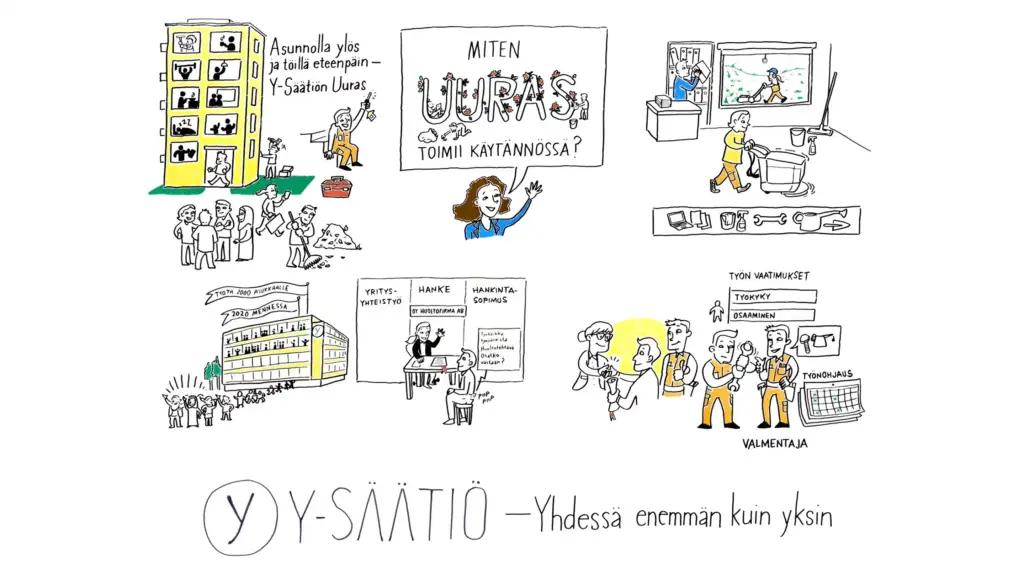 Asunnolla ylös
ja töillä eteenpäin –
Y-Säätiön Uuras
MITEN
UURAS
TOIMII KÄYTÄNNÖSSÄ?
TYÖTÄ 2000 ASUKKAALLE
2020 MENNESSÄ
YRITYS-
YHTEISTYÖ
HANKE
HANKINTA-
SOPIMUS
OY HUOLTOFIRMA AB
PIIP
PIIP
TYÖN VAATIMUKSET
TYÖKYKY
OSAAMINEN
TYÖNOHJAUS
VALMENTAJA
Y Y-SÄÄTIÖ – Yhdessä enemmän kuin yksin